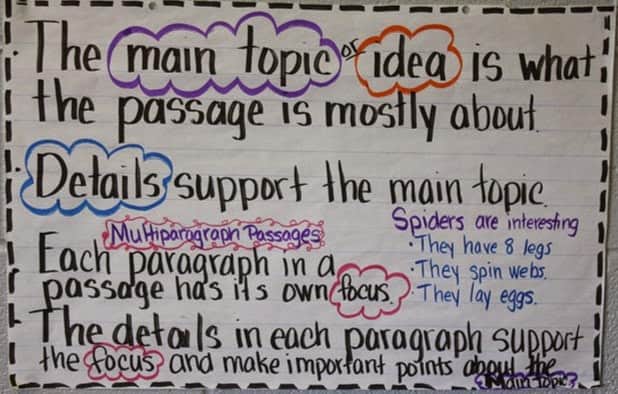 The main topic or idea is what
the passage is mostly about.
Details support the main topic.
Multiparagraph Passages
Each paragraph in a
passage has its own focus.
Spiders are interesting
• They have 8 legs
• They spin webs.
• They lay eggs.
The details in each paragraph support
the focus and make important points about the
Main Topic.